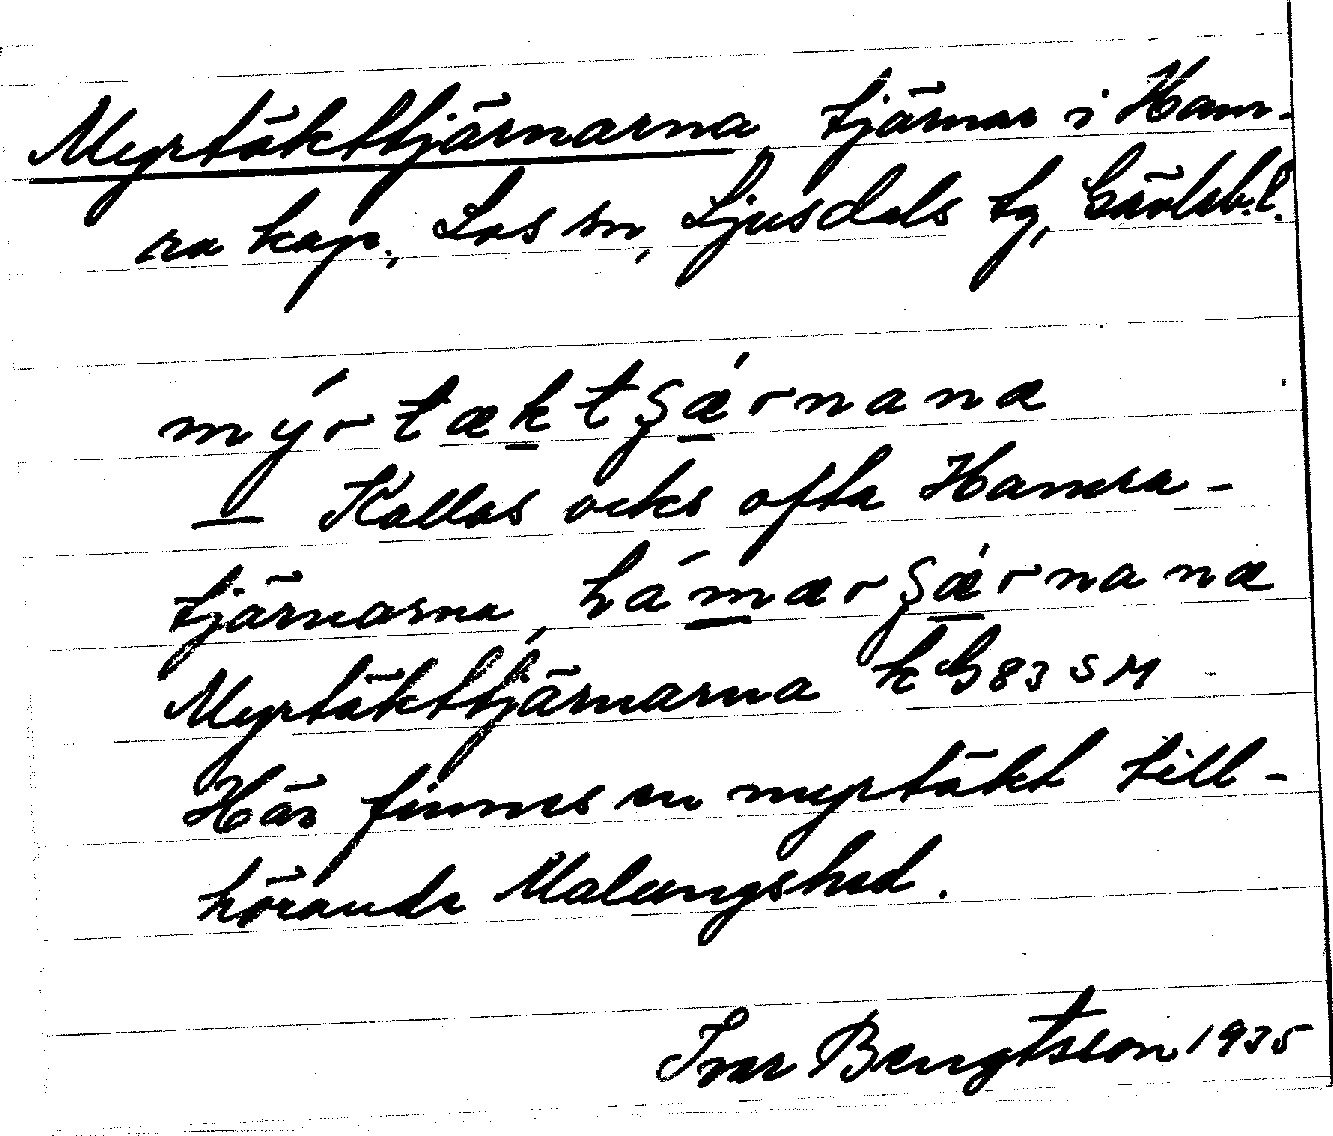 Myrtäkttjärnarna, tjärnar i Ham-
ra kap., Los sn, Ljusdals tg, Gävleb. l.
mýrtæktʂǽrnana
— Kallas ocks ofta Hamra-
tjärnarna, hámærʂǽrnanæ
Myrtäkttjärnarna k G 83 S M
Här finnes en myrtäkt till-
hörande Malungshed.
Ivar Bengtsson 1935